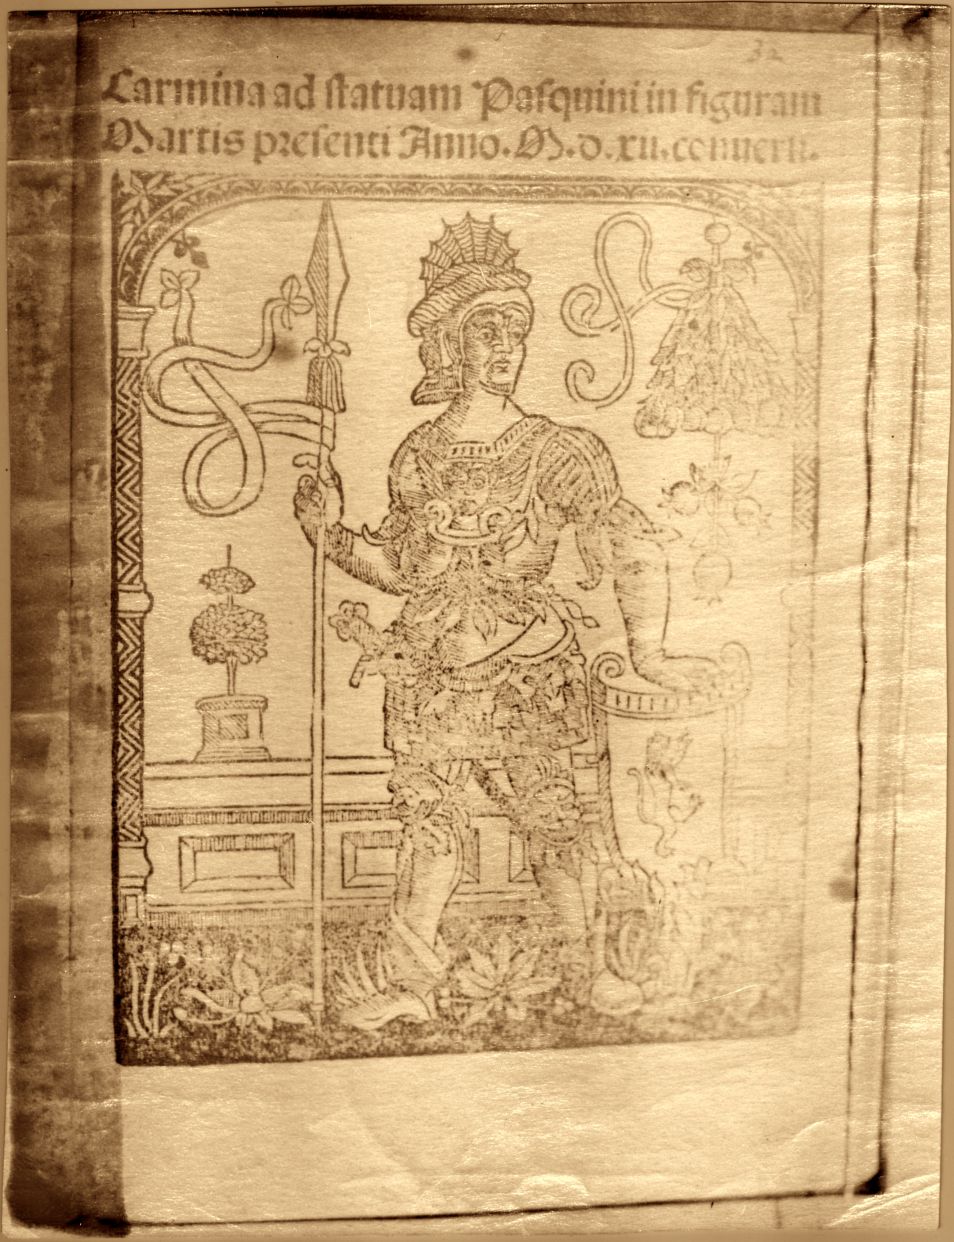 32
Carmina ad statuam Pasquini in figuram
Martis presenti Anno.M.d.xii.conuersi.